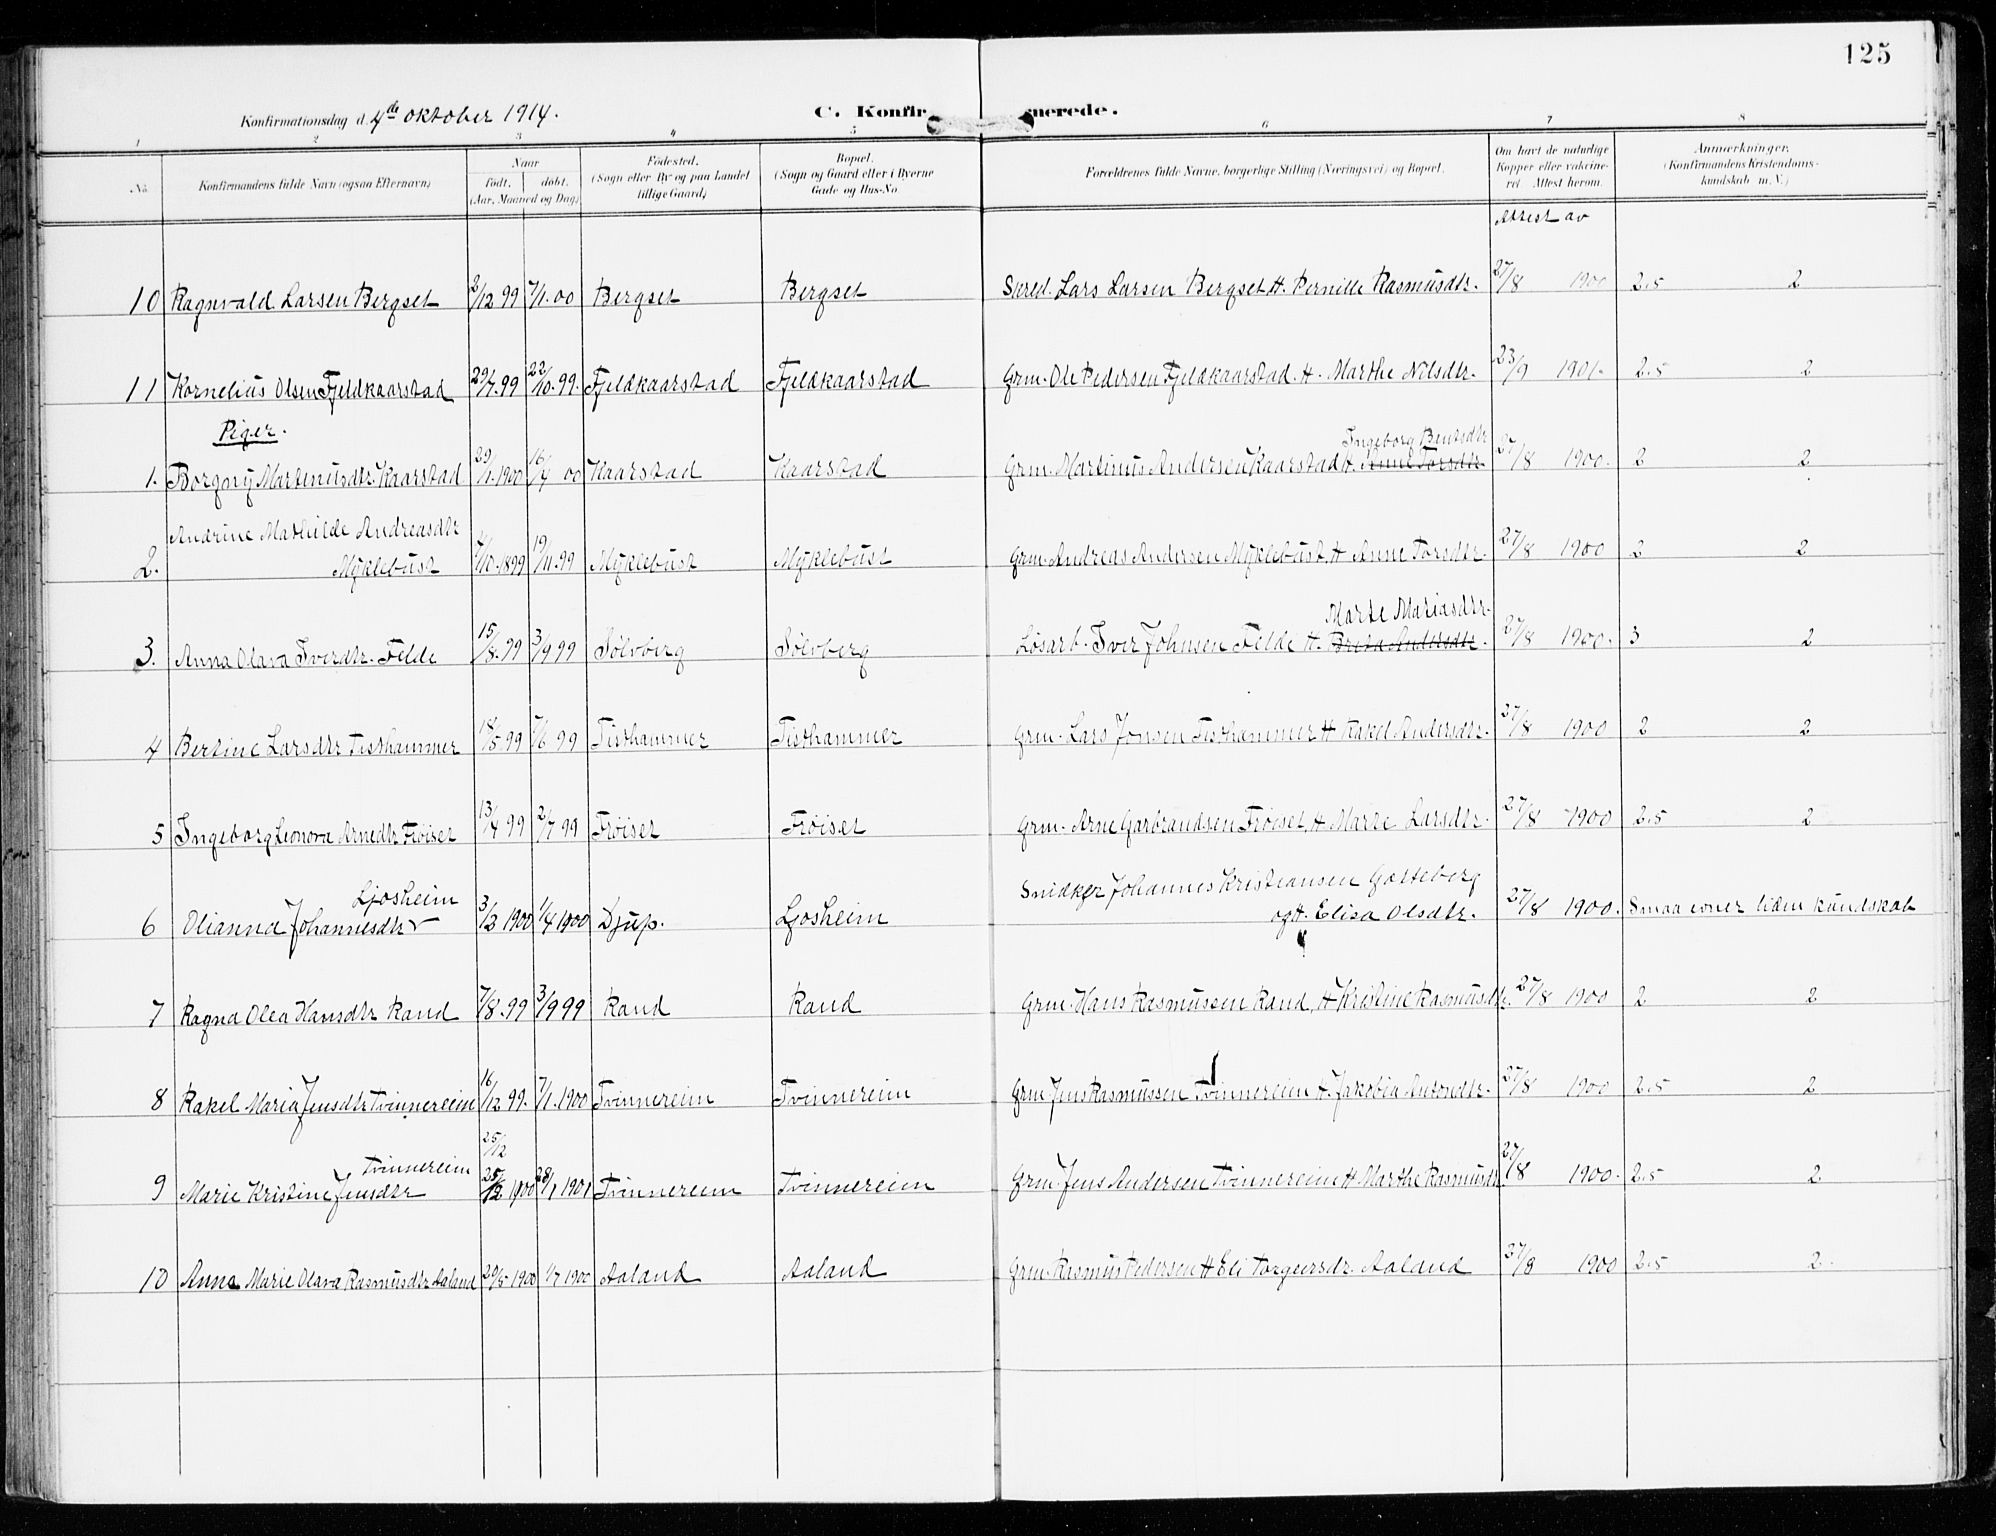 125
Konfirmationsdag d. 4de oktober 1914.
C. Konfirmerede.
1 2 3 4 5 6 7 8
No. Konfirmandens fulde Navn (ogsaa Efternavn) Naar født, døbt. (Aar, Maaned og Dag) Fødested. (Sogn eller By og paa Landet tillige Gaard) Bopæl. (Sogn og Gaard eller i Byerne Gade og Hus-No. Forældrenes fulde Navne, borgerlige Stilling (Næringsvei) og Bopæl. Om havt de naturlige Kopper eller vaccineret. Attest herom. Anmærkninger. (Konfirmandens Kristendomskundskab m. V.)
Attest av
10 Ragnvald Larsen Bergset 2/12 99 7/1.00 Bergset Bergset Lars Larsen Bergset H. Pernille Rasmusdtr. 27/8 1900 2.5 2
11 Kornelius Olsen Fjeldkaarstad 29/7.99 22/10.99. Fjeldkaarstad Fjeldkaarstad Grm. Ole Pedersen Fjeldkaarstad. H. Marthe Nilsdtr. 23/9 1901. 2.5 2
Piger.
Ingeborg Bentsdtr
1. Borgny Martinusdtr. Kaarstad 29/1.1900 16/4 00 Kaarstad Kaarstad Grm. Martinus Andersen Kaarstad H. Anne Torsdtr 27/8 1900. 2 2
Andrine Mathilde Andreasdtr
2. Myklebust 7/10.1899 19/11.99 Myklebust Myklebust Grm. Andreas Andersen Myklebust. H Anne Torsdtr. 27/8 1900 2 2
Marte Mariasdtr.
3. Anna Olava Iverdtr. Felde 15/8.99 3/9 99 Sølvberg Sølvberg Løsarb. Iver Johnsen Felde H. Breta Andersdtr. 27/8 1900. 3 2
4 Bertine Larsdtr Tisthammer 18/5 99 7/6 99 Tisthammer Tisthammer Grm. Lars Jonsen Tisthammer H Rakel Andersdtr. 27/8 1900 2 2
5 Ingeborg Leonora Arnedtr. Frøiset 13/4 99 2/7 99 Frøiset Frøiset Grm. Arne Garbrandsen Frøiset, H. Marte Larsdtr. 27/8 1900 2.5 2
Ljosheim Snidker Johannes Kristiansen Gotteberg
6 Olianna Johannesdtr 3/3 1900 1/4 1900 Djup. Ljosheim og H. Elisa Olsdtr. 27/8 1900. Smaa evner liden kundskab
7 Ragna Olea Hansdtr Rand 7/8.99 3/9 99 Rand Rand Grm. Hans Rasmussen Rand, H Kristine Rasmusdtr. 27/8 1900 2 2
8 Rakel Maria Jensdtr Tvinnereim 16/12 99. 7/1.1900 Tvinnereim Tvinnereim Grm. Jens Rasmussen Tvinnereim H. Jakobia Antondtr. 27/8 1900 2.5 2
25/12
Tvinnereim
9 Marie Kristine Jensdtr 25/12 1900 28/1 1901 Tvinnereim Tvinnereim Grm. Jens Andersen Tvinnereim H Marthe Rasmusdtr. 27/8 1900. 2.5 2
10 Anna Marie Olava Rasmusdtr Aaland 29/5 1900 1/7 1900 Aaland Aaland Grm. Rasmus Pedersen H Eli Torgeirsdr. Aaland 27/8 1900 2.5 2.